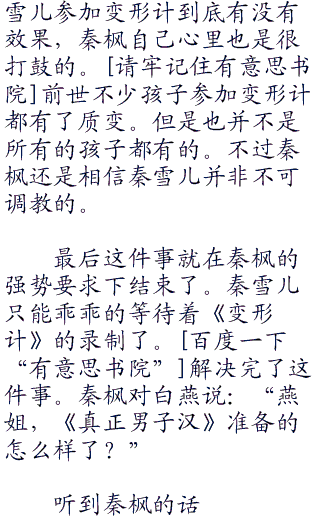 雪儿参加变形计到底有没有
效果，秦枫自己心里也是很
打鼓的。[请牢记住有意思书
院]前世不少孩子参加变形计
都有了质变。但是也并不是
所有的孩子都有的。不过秦
枫还是相信秦雪儿并非不可
调教的。
最后这件事就在秦枫的
强势要求下结束了。秦雪儿
只能乖乖的等待着《变形
计》的录制了。[百度一下
“有意思书院”]解决完了这
件事。秦枫对白燕说：“燕
姐，《真正男子汉》准备的
怎么样了？”
听到秦枫的话